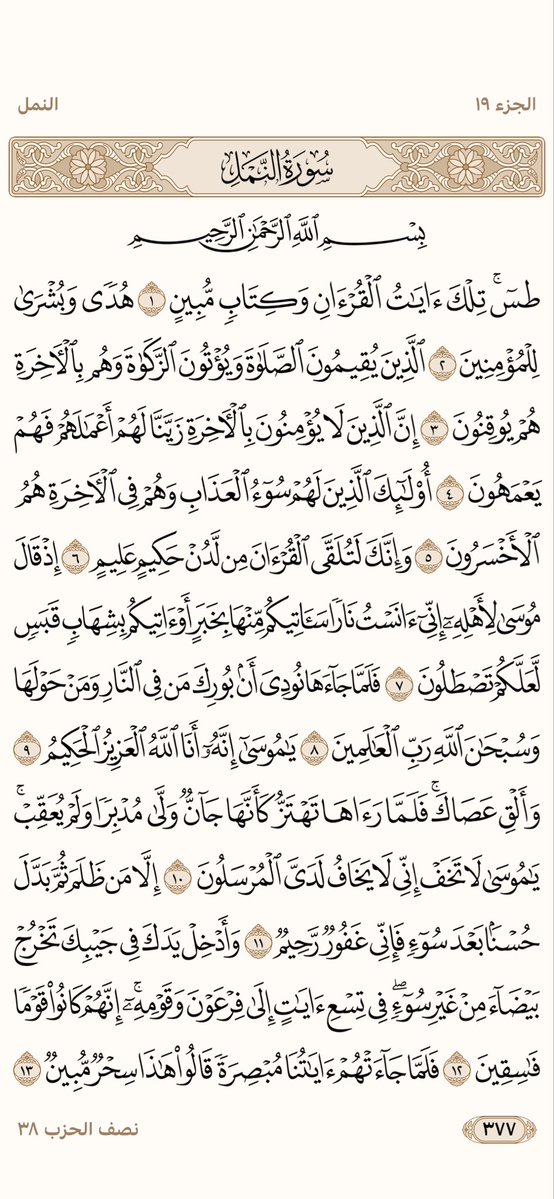 الجزء ١٩
النمل
سُورَةُ النَّمْلِ
بِسْمِ ٱللَّهِ ٱلرَّحْمَٰنِ ٱلرَّحِيمِ
طسٓۚ تِلْكَ ءَايَٰتُ ٱلْقُرْءَانِ وَكِتَابٍ مُّبِينٍ ١ هُدًى وَبُشْرَىٰ
لِلْمُؤْمِنِينَ ٢ ٱلَّذِينَ يُقِيمُونَ ٱلصَّلَوٰةَ وَيُؤْتُونَ ٱلزَّكَوٰةَ وَهُم بِٱلْأٓخِرَةِ
هُمْ يُوقِنُونَ ٣ إِنَّ ٱلَّذِينَ لَا يُؤْمِنُونَ بِٱلْأٓخِرَةِ زَيَّنَّا لَهُمْ أَعْمَٰلَهُمْ فَهُمْ
يَعْمَهُونَ ٤ أُو۟لَٰٓئِكَ ٱلَّذِينَ لَهُمْ سُوٓءُ ٱلْعَذَابِ وَهُمْ فِى ٱلْأٓخِرَةِ هُمُ
ٱلْأَخْسَرُونَ ٥ وَإِنَّكَ لَتُلَقَّى ٱلْقُرْءَانَ مِن لَّدُنْ حَكِيمٍ عَلِيمٍ ٦ إِذْ قَالَ
مُوسَىٰ لِأَهْلِهِۦٓ إِنِّىٓ ءَانَسْتُ نَارًا سَـَٔاتِيكُم مِّنْهَا بِخَبَرٍ أَوْ ءَاتِيكُم بِشِهَابٍ قَبَسٍ
لَّعَلَّكُمْ تَصْطَلُونَ ٧ فَلَمَّا جَآءَهَا نُودِىَ أَنۢ بُورِكَ مَن فِى ٱلنَّارِ وَمَنْ حَوْلَهَا
وَسُبْحَٰنَ ٱللَّهِ رَبِّ ٱلْعَٰلَمِينَ ٨ يَٰمُوسَىٰٓ إِنَّهُۥٓ أَنَا ٱللَّهُ ٱلْعَزِيزُ ٱلْحَكِيمُ ٩
وَأَلْقِ عَصَاكَۚ فَلَمَّا رَءَاهَا تَهْتَزُّ كَأَنَّهَا جَآنٌّ وَلَّىٰ مُدْبِرًا وَلَمْ يُعَقِّبْۚ
يَٰمُوسَىٰ لَا تَخَفْ إِنِّى لَا يَخَافُ لَدَىَّ ٱلْمُرْسَلُونَ ١٠ إِلَّا مَن ظَلَمَ ثُمَّ بَدَّلَ
حُسْنًۢا بَعْدَ سُوٓءٍ فَإِنِّى غَفُورٌ رَّحِيمٌ ١١ وَأَدْخِلْ يَدَكَ فِى جَيْبِكَ تَخْرُجْ
بَيْضَآءَ مِنْ غَيْرِ سُوٓءٍۖ فِى تِسْعِ ءَايَٰتٍ إِلَىٰ فِرْعَوْنَ وَقَوْمِهِۦٓۚ إِنَّهُمْ كَانُوا۟ قَوْمًا
فَٰسِقِينَ ١٢ فَلَمَّا جَآءَتْهُمْ ءَايَٰتُنَا مُبْصِرَةً قَالُوا۟ هَٰذَا سِحْرٌ مُّبِينٌ ١٣
٣٧٧
نصف الحزب ٣٨